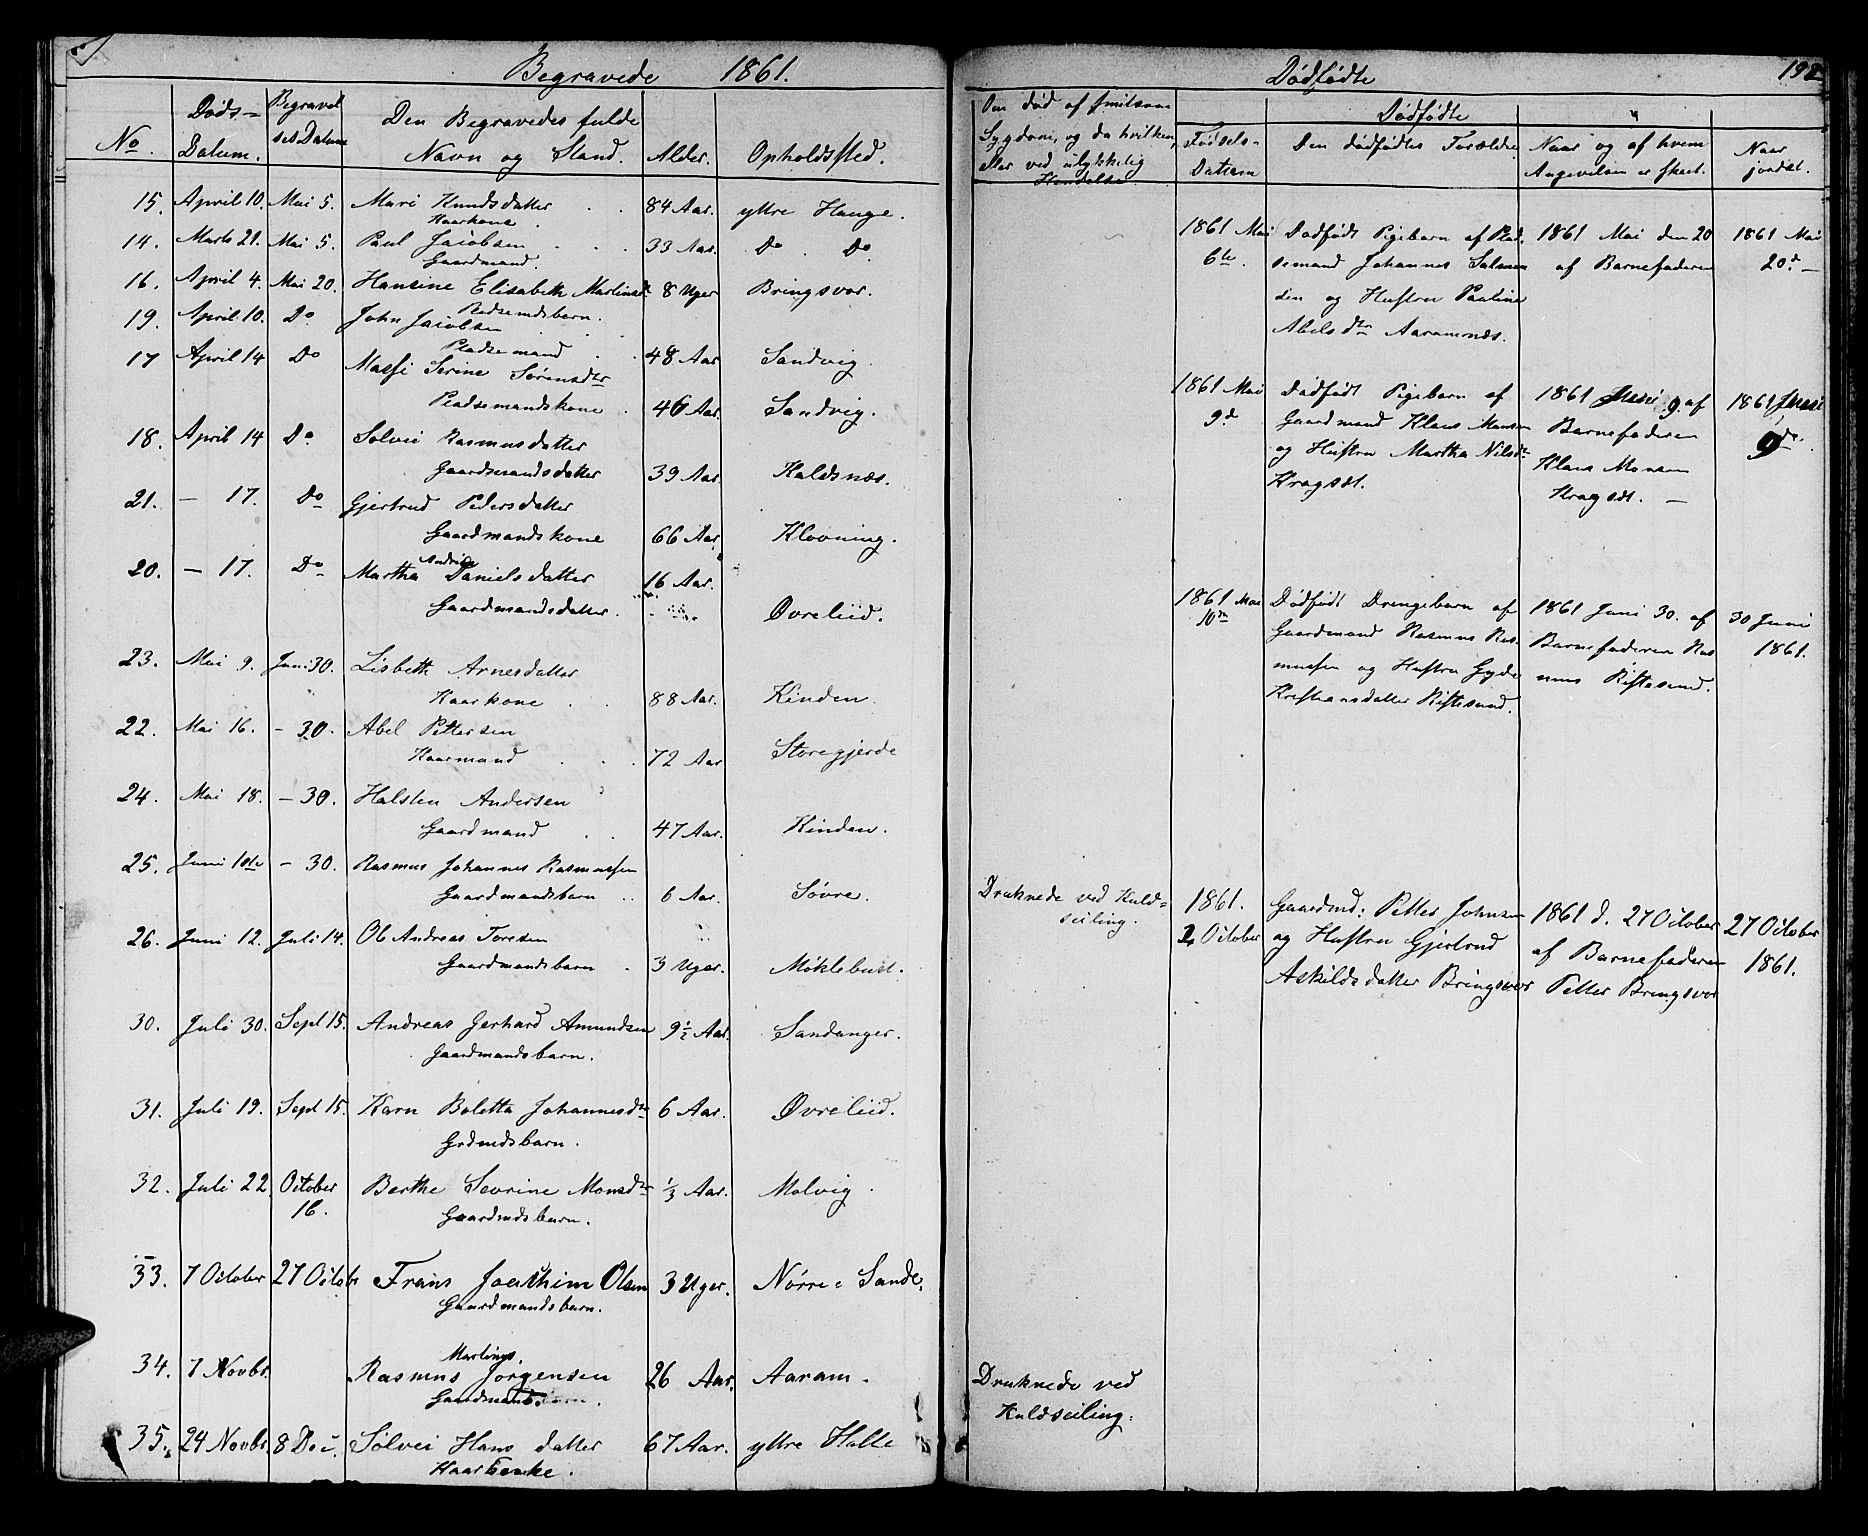 Begravede 1861.
No. Døds-Datum. Begravelses Datum Den Begravedes fulde Navn og Stand. Alder. Opholdssted.
15. April 10. Mai 5. Mari Knudsdatter 84 Aar. yttre Hauge.
Kaarkone.
14. Marts 21. Mai 5. Paul Jacobsen 33 Aar. Do Do
Gaardmand.
16. April 4. Mai 20. Hansine Elisabeth Martinsd 8 Uger Bringsvor.
Pladsemdsbarn.
19. April 10. Do John Jacobsen
Pladsemand 48 Aar Sandvig.
17 April 14 Do Massi Serine Sørensdtr
Pladsemandskone. 46 Aar. Sandvig.
18. April 14 Do Solvei Rasmusdatter
Gaardmandsdatter 39 Aar. Kaldsnæs.
21. — 17. Do Gjertrud Pedersdatter
Gaardmandskone 66 Aar. Klovning.
Andrine
20. — 17. Do Martha Danielsdatter 16 Aar.
Gaardmandsdatter. Øvreliid.
23. Mai 9. Juni 30. Lisbeth Arnesdatter
Kaarkone 88 Aar. Kinden.
22. Mai 16. - 30. Abel Pettersen
Kaarmand 72 Aar Storegjerde
24. Mai 18. - 30. Halsten Andersen
Gaardmand 47 Aar. Kinden.
25. Juni - 30. Rasmus Johannes Rasmussen
Gaardmandsbarn 6 Aar. Søvre.
26. Juni 12. Juli 14. Ol Andreas Toresen
Gaardmandsbarn 3 Uger. Møklebust.
30. Juli 30. Sept 15. Andreas Gerhard Amundsen 9½ Aar. Sandanger.
Gaardmandsbarn.
31. Juli 19. Sept 15. Karn Boletta Johannesdtr 6 Aar. Øvreliid.
Grdmdsbarn.
32. Juli 22. October Berthe Sevrine Monsdtr ⅓ Aar. Molvig.
16. Gaardmdsbarn.
33. 7 October 27 Octobr Frans Joachim Olsen 3 Uger. Nørre Sande.
Gaardmandsbarn.
Martinus.
34. 7 Novbr. Rasmus Jørgensen 26 Aar. Aaram.
Gaardmands
35. 24 Novbr. 8 Dec. Sølvei Hans datter 67 Aar. yttre Halle
Kaarenke.
Dødfødte 198
Om død af smitsom Sygdom, og da hvilken, eller ved ulykkelig Hendelse
Druknede ved Kuldseiling.
Druknede ved
Kuldseiling.
Dødfødte "
Fødsels-Datum Den dødfødtes Forældre Naar og af hvem Angivelsen er skeet. Naar jordet.
1861 Mai Dødfødt Pigebarn af Plad- 1861 Mai den 20 1861 Mai
6te. semand Johannes Salmon af Barnefaderen 20d —
den og Hustru Pauline
Abelsdtr Aaramnæs.
1861 Mai Dødfødt Pigebarn af 1861 9. af 1861
9d Gaardmand Klaus Monsen Barnefaderen 9de.
og Hustru Martha Nilsdtr Klaus Monsen
Kragsæt. Kragsæt. —
1861 Mai Dødfødt Drengebarn af 1861 Juni 30. af 30 Juni
10de Gaardmand Rasmus Ras- Barnefaderen Ras 1861.
mussen og Hustru Gyde mus Riste​sund.
Kristiansdatter Ristesund.
1861. Gaardmd: Petter Johnsen 1861 d. 27 October 27 October
October og Hustru Gjertrud af Barnefaderen 1861.
Askildsdatter Bringsvor Petter Bringsvor